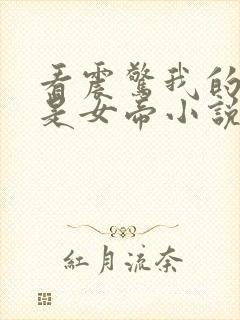 看震驚我的
是女帝小說
紅月流奈